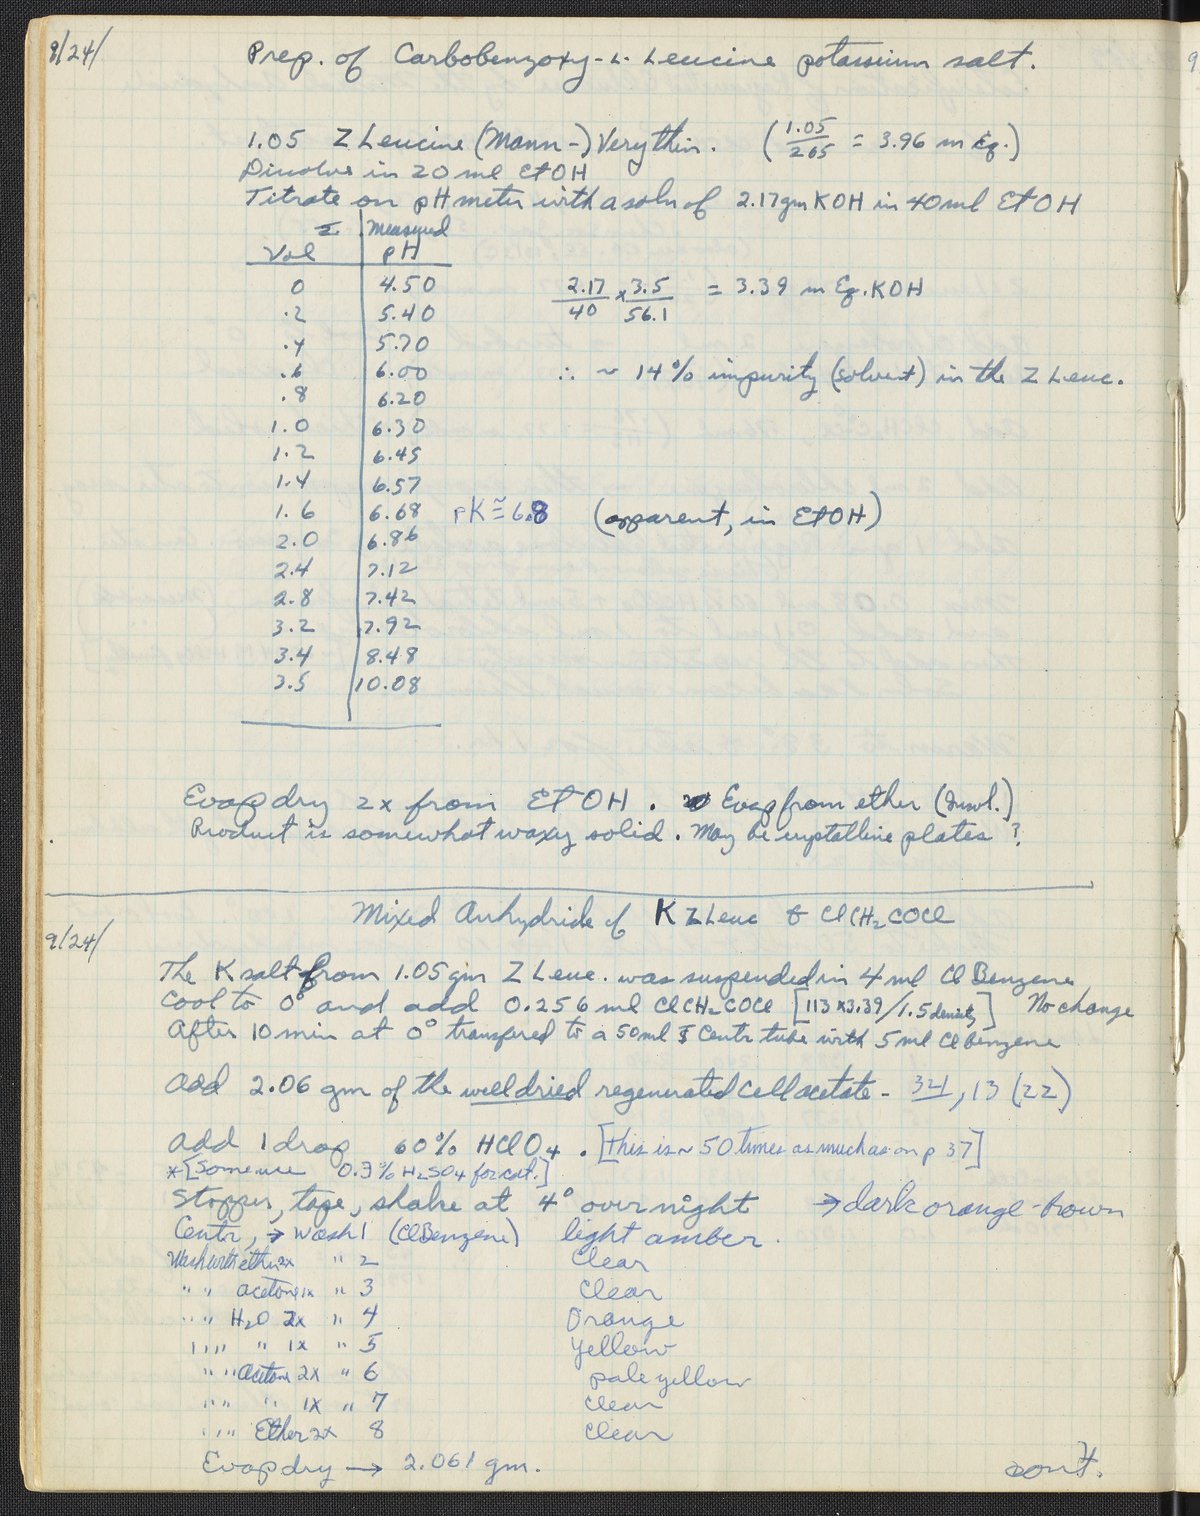 9/24/
Prep. of Carbobenzoxy-L-Leucine potassium salt.
1.05 Z Leucine (Mann-) Very thin. (1.05/265 = 3.96 m Eq.)
Dissolve in 20 ml EtOH
Titrate on pH meter with a soln of 2.17 gm KOH in 40 ml EtOH
Σ Measured
Vol pH
0 4.50 2.17/40 x 3.5/56.1 = 3.39 m Eq. KOH
.2 5.40
.4 5.70
.6 6.00 ∴ ~ 14% impurity (solvent) in the Z Leuc.
.8 6.20
1.0 6.30
1.2 6.45
1.4 6.57
1.6 6.68 pK ≅ 6.8 (apparent, in EtOH)
2.0 6.86
2.4 7.12
2.8 7.42
3.2 7.92
3.4 8.48
3.5 10.08
Evap dry 2x from EtOH. Evap from ether (Insol.)
Product is somewhat waxy solid. May be crystalline plates?
Mixed Anhydride of K Z Leuc & ClCH2COCl
9/24/
The K salt from 1.05 gm Z Leuc. was suspended in 4 ml Cl Benzene
Cool to 0° and add 0.256 ml ClCH2COCl [113 x 3.39/1.5 density] No change
After 10 min at 0° transfered to a 50 ml Centr tube with 5 ml Cl benzene
Add 2.06 gm of the well dried regenerated cell acetate - 34, 13 (22)
Add 1 drop 60% HClO4. [this is ~ 50 times as much as on p 37]
*[Some use 0.3% H2SO4 for cat.]
Stopper, tape, shake at 4° over night → dark orange-brown
Centr, → Wash 1 (Cl Benzene) light amber.
Wash with ether 2x " 2 Clear
" " acetone 1x " 3 Clear
" " H2O 2x " 4 Orange
" " " 1x " 5 Yellow
" " Acetone 2x " 6 pale yellow
" " " 1x " 7 Clear
" " Ether 2x 8 Clear
Evap dry → 2.061 gm.
cont.